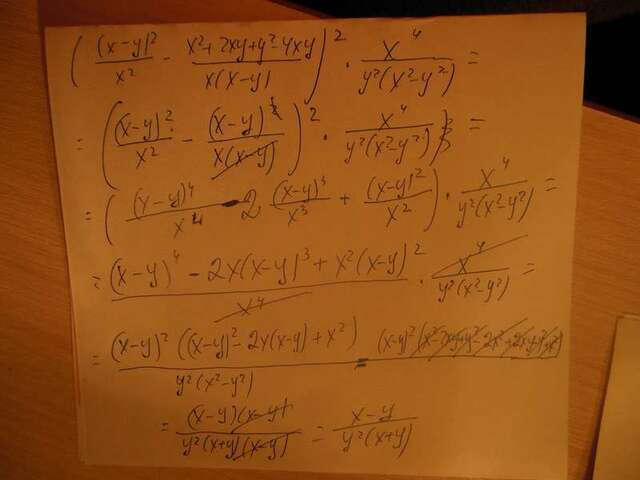 ( (x-y)²/x² - (x²+2xy+y²-4xy)/(x(x-y)) )² · x⁴/(y²(x²-y²)) =
= ( (x-y)²/x² - (x-y)²/(x(x-y)) )² · x⁴/(y²(x²-y²)) =
= ( (x-y)⁴/x⁴ - 2 (x-y)³/x³ + (x-y)²/x² ) · x⁴/(y²(x²-y²)) =
= ((x-y)⁴ - 2x(x-y)³ + x²(x-y)²)/x⁴ · x⁴/(y²(x²-y²)) =
= (x-y)² ((x-y)² - 2x(x-y) + x²)/(y²(x²-y²)) = (x-y)² (x²-2xy+y²-2x²+2xy+x²)
= (x-y)(x-y)/(y²(x+y)(x-y)) = (x-y)/(y²(x+y))